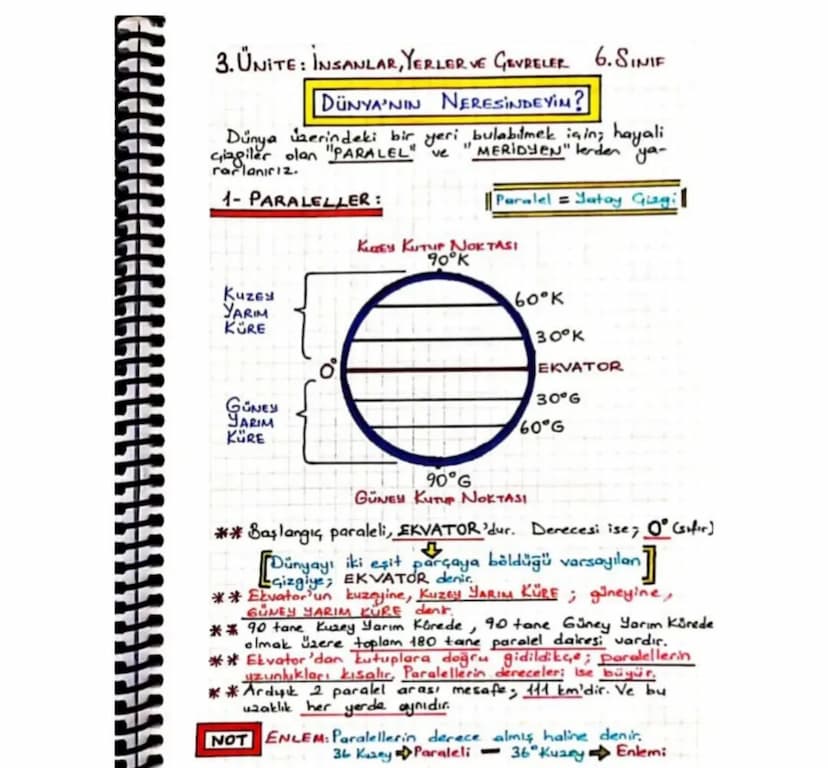 3. ÜNİTE: İNSANLAR, YERLER VE ÇEVRELER 6. SINIF
DÜNYA'NIN NERESİNDEYİM?
Dünya üzerindeki bir yeri bulabilmek için; hayali
çizgiler olan "PARALEL" ve "MERİDYEN" lerden ya-
rarlanırız.
1- PARALELLER:
Paralel = Yatay Çizgi
KUZEY KUTUP NOKTASI
90°K
KUZEY
YARIM
KÜRE
60°K
30°K
0°
EKVATOR
GÜNEY
YARIM
KÜRE
30°G
60°G
90°G
GÜNEY KUTUP NOKTASI
** Başlangıç paraleli, EKVATOR'dur. Derecesi ise; 0° (sıfır)
[Dünyayı iki eşit parçaya böldüğü varsayılan
çizgiye; EKVATOR denir.]
** Ekvator'un kuzeyine, KUZEY YARIM KÜRE ; güneyine,
GÜNEY YARIM KÜRE denir.
** 90 tane Kuzey Yarım Kürede, 90 tane Güney Yarım Kürede
olmak üzere toplam 180 tane paralel dairesi vardır.
** Ekvator'dan kutuplara doğru gidildikçe; paralellerin
uzunlukları kısalır, Paralellerin dereceleri ise büyür.
** Ardışık 2 paralel arası mesafe; 111 km'dir. Ve bu
uzaklık her yerde aynıdır.
NOT ENLEM: Paralellerin derece almış haline denir.
36 Kuzey ➡ Paraleli — 36° Kuzey ➡ Enlemi